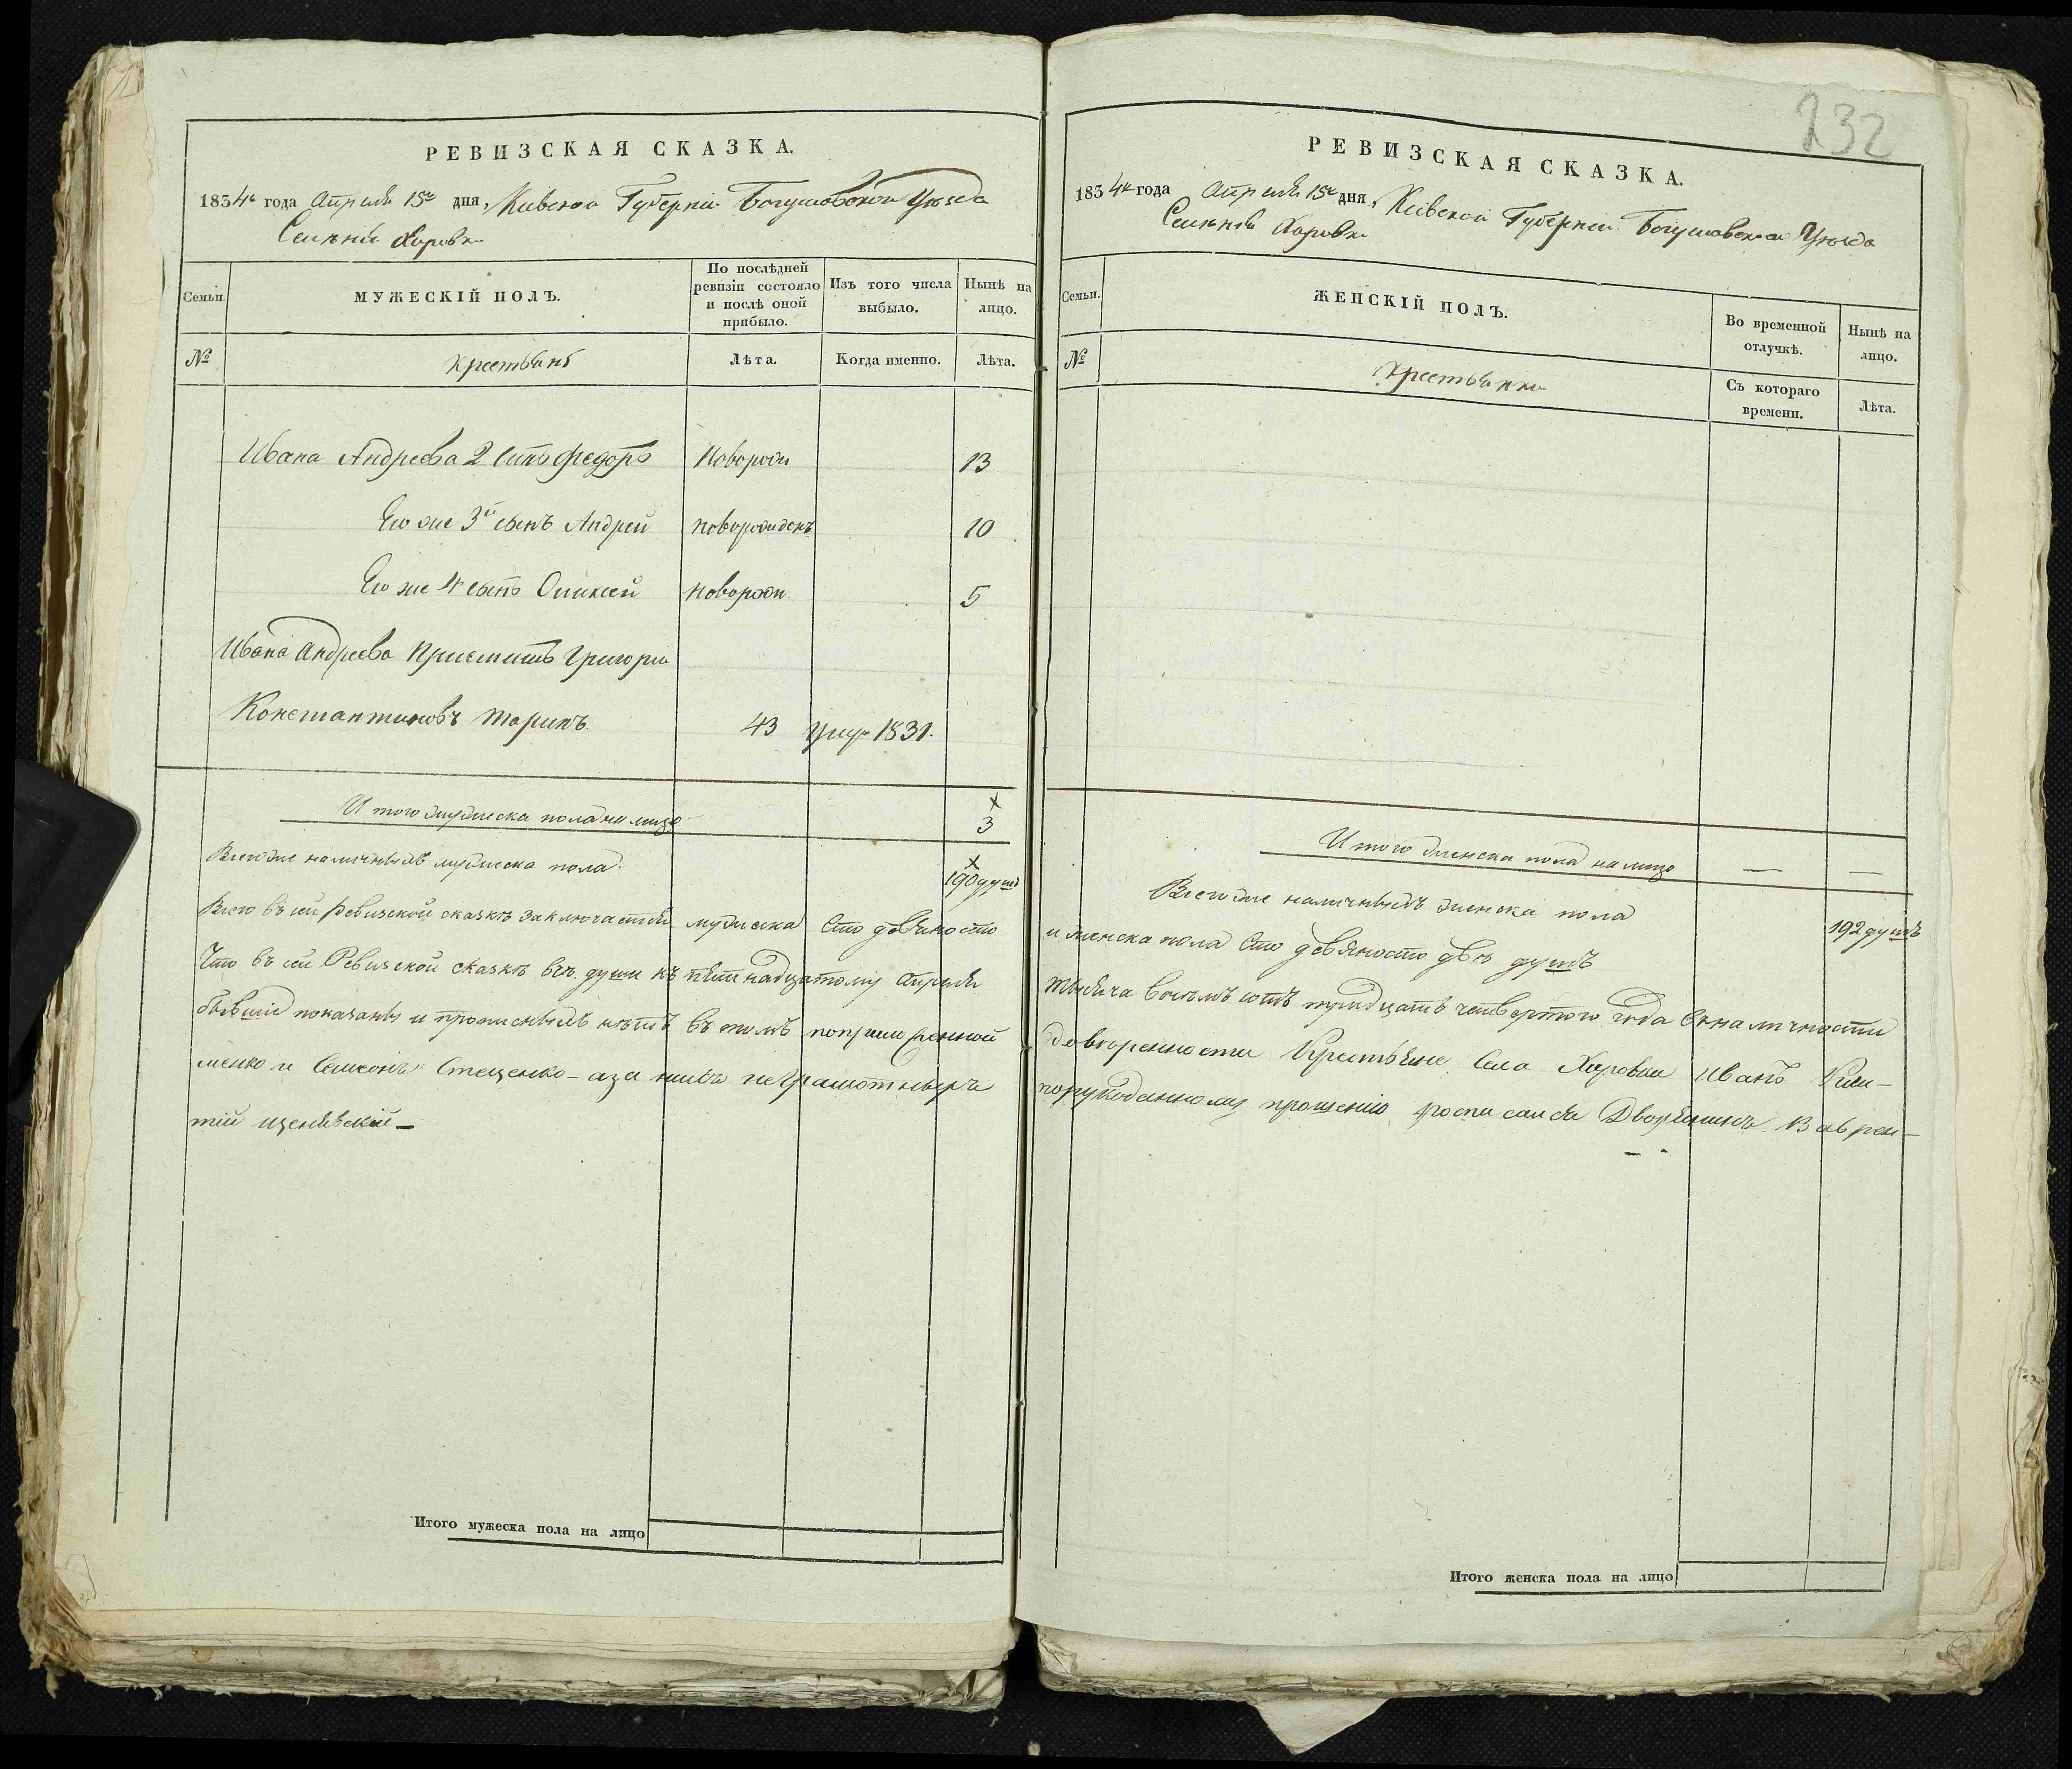 РЕВИЗСКАЯ СКАЗКА.
1834го года Апреля 15го дня, Киевской Губерніи Богуславского Уезда
Селенія Харовки
Семьи.
МУЖЕСКІЙ ПОЛЪ.
По послѣдней ревизіи состояло и послѣ оной прибыло.
Изъ того числа выбыло.
Нынѣ на лицо.
№
крестьянъ
Лѣта.
Когда именно.
Лѣта.
Ивана Андреева 2 сынъ Федоръ новорожд 13
Его же 3й сынъ Андрей новорожденъ 10
Его же 4 сынъ Оликсей новорожд 5
Ивана Андреева Приемышъ Григори
Константиновъ 43 1831.
Итого мужеска пола на лицо 3
Всего же наличныхъ мужеска пола. 190 душъ
Всего въ сей Ревизской сказкѣ заключается мужеска сто девяносто
Что въ сей Ревизской сказкѣ всѣ души къ пятнадцатому Апреля
бывшіе показаны и прописныхъ нѣтъ въ томъ
менко и Семенъ Стеценко - а за нихъ неграмотныхъ
тій
Итого мужеска пола на лицо
232
РЕВИЗСКАЯ СКАЗКА.
1834го года Апреля 15го дня, Киевской Губерніи Богуславского Уезда
Селенія Харовки
Семьи.
ЖЕНСКІЙ ПОЛЪ.
Во временной отлучкѣ.
Нынѣ на лицо.
№
Крестьянки
Съ котораго времени.
Лѣта.
Итого женска пола на лицо — —
Всего же наличныхъ женска пола 192 душъ
и женска пола сто девяносто двѣ душъ
тысяча восемъ сотъ тридцать четвертого года въ наличности
доверенности Крестьяне села Харовки Иванъ
прошенію росписался ДворянинъВаврен-
Итого женска пола на лицо